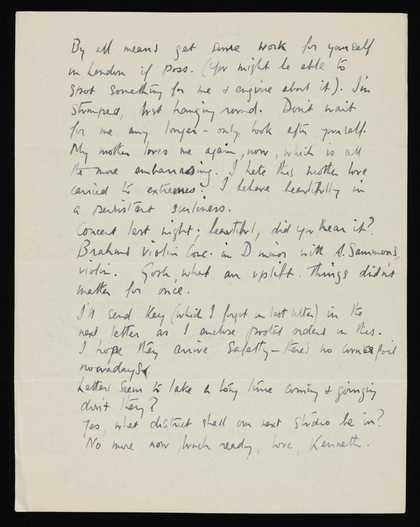 By all means get some work for yourself
in London if poss. (You might be able to
spot something for me & enquire about it). I'm
stumped, just hanging round. Don't wait
for me any longer - only look after yourself.
My mother loves me again, now, which is all
the more embarrassing. I hate this mother love
carried to extremes. I behave beautifully in
a persistent
Concert last night, beautiful, did you hear it?
Brahms violin Conc. in D minor with A. Sammons
violin. Gosh, what an uplift. Things didn't
matter for once.
I'll send key (which I forgot in last letter) in the
next letter as I enclose postal orders in this.
I hope they arrive safetly - there's no
nowadays.
Letters seem to take a long time coming & going
don't they?
Yes, what district shall our next studio be in?
No more now, lunch ready, love, Kenneth.